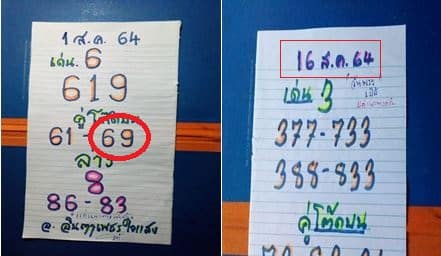 1 ส.ค. 64
เด่น. 6
619
คู่โต๊ดบน
61 - 69
ล่าง
8
86 - 83
16 ส.ค. 64
เด่น 3
377-733
388-833
คู่โต๊ดบน